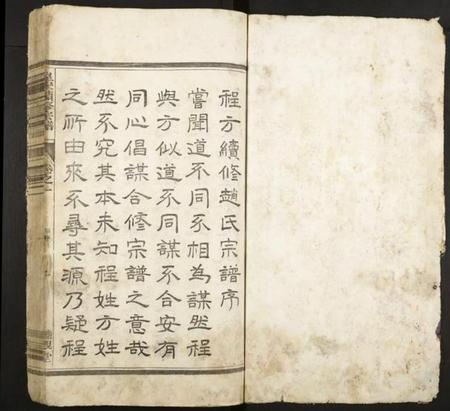 程方續修趙氏宗譜序
嘗聞道不同不相為謀然程
與方似道不同謀不合安有
同心倡謀合修宗譜之意哉
然不究其本未知程姓方姓
之所由來不尋其源乃疑程